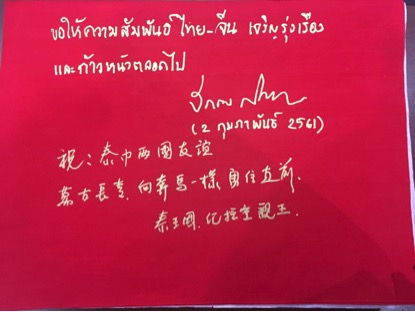 ขอให้ความสัมพันธ์ไทย-จีน เจริญรุ่งเรือง
และก้าวหน้าตลอดไป
(2 กุมภาพันธ์ 2561)
祝:泰中两國友誼
萬古長青,向奔馬一樣,勇往直前.
泰王國.